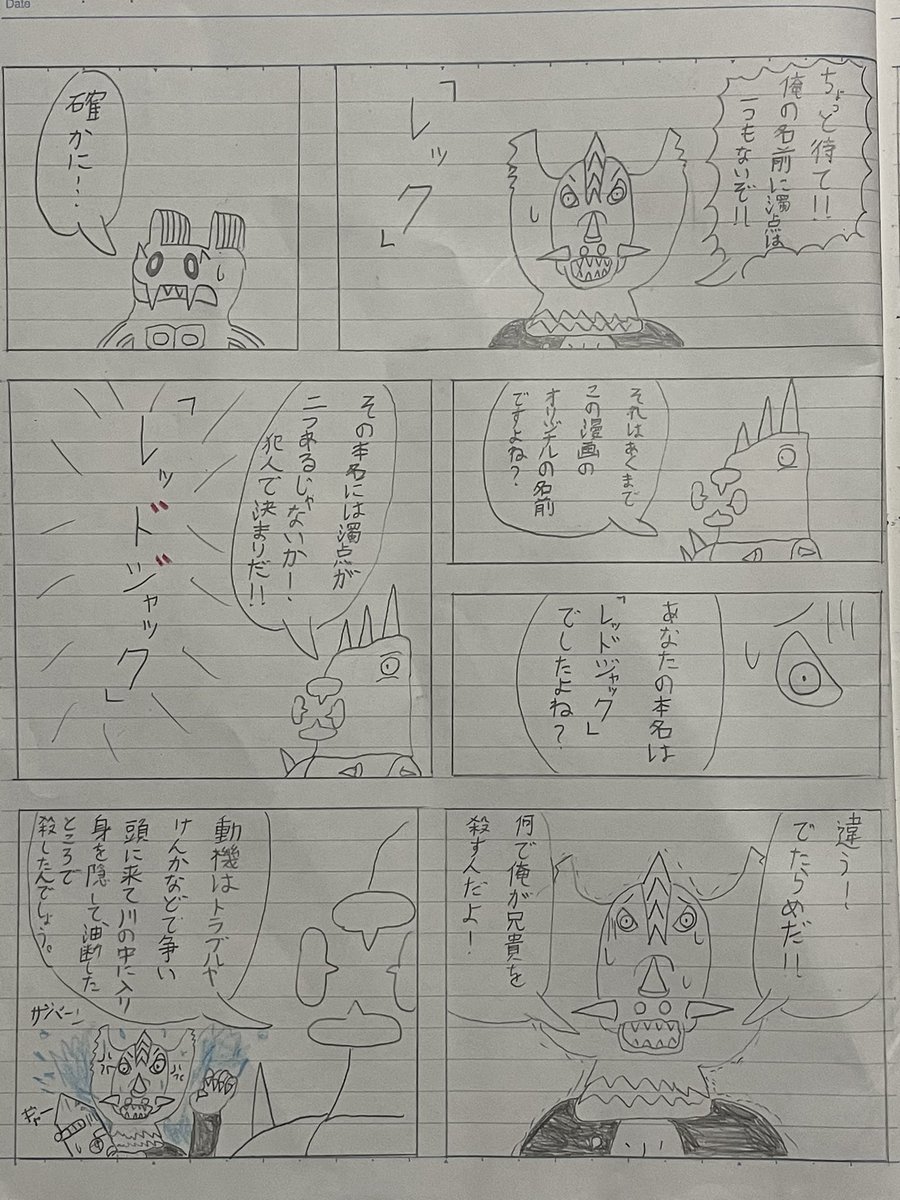 Date
ちょっと待て!!
俺の名前に濁点は
一つもないぞ!!
「レック」
確かに!.
それはあくまで
この漫画の
オリジナルの名前
ですよね?
あなたの本名は
「レッドジャック」
でしたよね?
その本名には濁点が
二つあるじゃないか!
犯人で決まりだ!!
「レッドジャック」
違うー
でたらめだ!!
何で俺が兄貴を
殺すんだよ!
動機はトラブルや
けんかなどで争い
頭に来て川の中に入り
身を隠して、油断した
ところで
殺したんでしょう。
ザバーン
ギャー